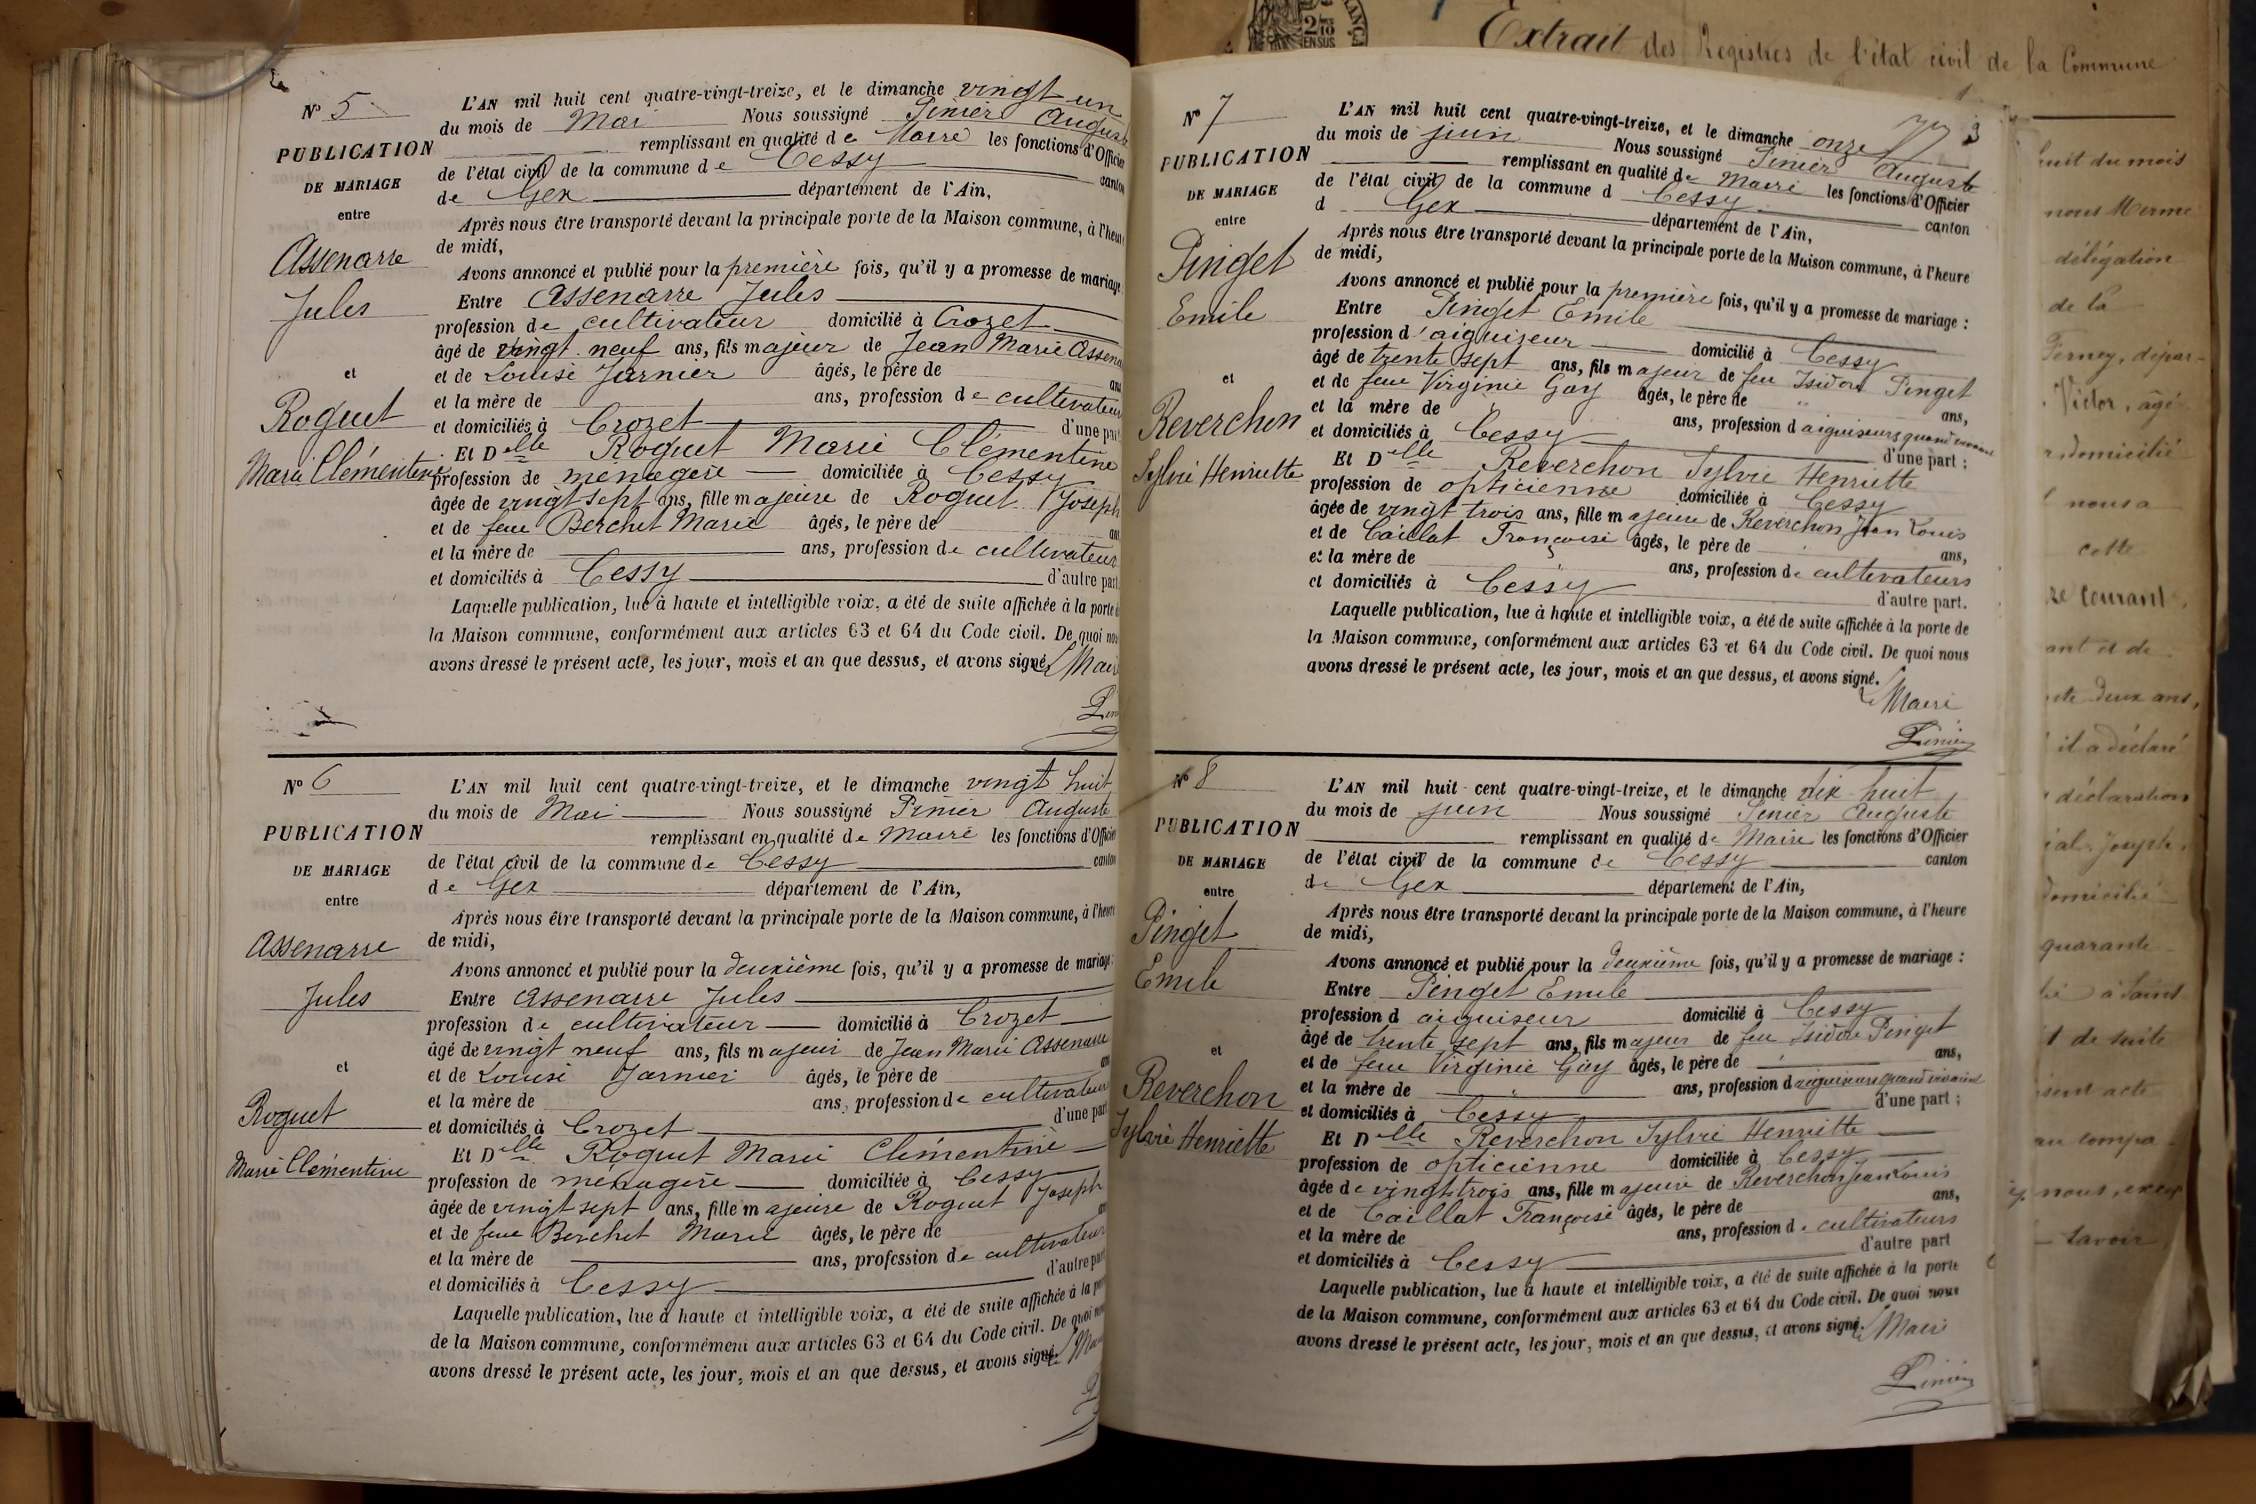 Nº 5
PUBLICATION
DE MARIAGE
entre
Assenarre
Jules
et
Roguet
Marie Clémentine
L'AN mil huit cent quatre-vingt-treize, et le dimanche vingt un
du mois de Mai Nous soussigné Pinier Auguste
remplissant en qualité de Maire les fonctions d'Officier
de l'état civil de la commune de Cessy canton
de Gex département de l'Ain,
Après nous être transporté devant la principale porte de la Maison commune, à l'heure
de midi,
Avons annoncé et publié pour la première fois, qu'il y a promesse de mariage
Entre Assenarre Jules
profession de cultivateur domicilié à Crozet
âgé de vingt neuf ans, fils majeur de Jean Marie Assena
et de Louise Jarnier âgés, le père de ans
et la mère de ans, profession de cultivateur
et domiciliés à Crozet d'une part
Et Delle Roguet Marie Clémentine
profession de ménagère domiciliée à Cessy
âgée de vingt sept ans, fille majeure de Roguet Joseph
et de feue Berchet Marie âgés, le père de ans
et la mère de ans, profession de cultivateur
et domiciliés à Cessy d'autre part
Laquelle publication, lue à haute et intelligible voix, a été de suite affichée à la porte de
la Maison commune, conformément aux articles 63 et 64 du Code civil. De quoi nous
avons dressé le présent acte, les jour, mois et an que dessus, et avons signé. Le Maire
Nº 6
PUBLICATION
DE MARIAGE
entre
Assenarre
Jules
et
Roguet
Marie Clémentine
L'AN mil huit cent quatre-vingt-treize, et le dimanche vingt huit
du mois de Mai Nous soussigné Pinier Auguste
remplissant en qualité de Maire les fonctions d'Officier
de l'état civil de la commune de Cessy canton
de Gex département de l'Ain,
Après nous être transporté devant la principale porte de la Maison commune, à l'heure
de midi,
Avons annoncé et publié pour la deuxième fois, qu'il y a promesse de mariage :
Entre Assenarre Jules
profession de cultivateur domicilié à Crozet
âgé de vingt neuf ans, fils majeur de Jean Marie Assenarre
et de Louise Jarnier âgés, le père de ans
et la mère de ans, profession de cultivateur
et domiciliés à Crozet d'une part
Et Delle Roguet Marie Clémentine
profession de ménagère domiciliée à Cessy
âgée de vingt sept ans, fille majeure de Roguet Joseph
et de feue Berchet Marie âgés, le père de an
et la mère de ans, profession de cultivateur
et domiciliés à Cessy d'autre part
Laquelle publication, lue à haute et intelligible voix, a été de suite affichée à la porte
de la Maison commune, conformément aux articles 63 et 64 du Code civil. De quoi nous
avons dressé le présent acte, les jour, mois et an que dessus, et avons signé. Le Ma
Nº 7
PUBLICATION
DE MARIAGE
entre
Pinget
Emile
et
Reverchon
Sylvie Henriette
L'AN mil huit cent quatre-vingt-treize, et le dimanche onze
du mois de juin Nous soussigné Pinier Auguste
remplissant en qualité de Maire les fonctions d'Officier
de l'état civil de la commune d Cessy canton
d Gex département de l'Ain,
Après nous être transporté devant la principale porte de la Maison commune, à l'heure
de midi,
Avons annoncé et publié pour la première fois, qu'il y a promesse de mariage :
Entre Pinget Emile
profession d'aiguiseur domicilié à Cessy
âgé de trente sept ans, fils majeur de feu Isidore Pinget
et de feue Virginie Gay âgés, le père de ans,
et la mère de ans, profession d aiguiseurs quand vivaient
et domiciliés à Cessy d'une part ;
Et Delle Reverchon Sylvie Henriette
profession de opticienne domiciliée à Cessy
âgée de vingt trois ans, fille majeure de Reverchon Jean Louis
et de Caillat Françoise âgés, le père de ans,
et la mère de ans, profession de cultivateurs
et domiciliés à Cessy d'autre part.
Laquelle publication, lue à haute et intelligible voix, a été de suite affichée à la porte de
la Maison commune, conformément aux articles 63 et 64 du Code civil. De quoi nous
avons dressé le présent acte, les jour, mois et an que dessus, et avons signé.
Le Maire
Pinier
Nº 8
PUBLICATION
DE MARIAGE
entre
Pinget
Emile
et
Reverchon
Sylvie Henriette
L'AN mil huit cent quatre-vingt-treize, et le dimanche dix huit
du mois de juin Nous soussigné Pinier Auguste
remplissant en qualité de Maire les fonctions d'Officier
de l'état civil de la commune de Cessy canton
de Gex département de l'Ain,
Après nous être transporté devant la principale porte de la Maison commune, à l'heure
de midi,
Avons annoncé et publié pour la deuxième fois, qu'il y a promesse de mariage :
Entre Pinget Emile
profession d aiguiseur domicilié à Cessy
âgé de trente sept ans, fils majeur de feu Isidore Pinget
et de feue Virginie Gay âgés, le père de ans,
et la mère de ans, profession d aiguiseurs quand vivaient
et domiciliés à Cessy d'une part ;
Et Delle Reverchon Sylvie Henriette
profession de opticienne domiciliée à Cessy
âgée de vingt trois ans, fille majeure de Reverchon Jean Louis
et de Caillat Françoise âgés, le père de ans,
et la mère de ans, profession de cultivateurs
et domiciliés à Cessy d'autre part
Laquelle publication, lue à haute et intelligible voix, a été de suite affichée à la porte
de la Maison commune, conformément aux articles 63 et 64 du Code civil. De quoi nous
avons dressé le présent acte, les jour, mois et an que dessus, et avons signé. Le Maire
Pinier
Extrait des Registres de l'état civil de la Commune
huit du mois
nous Merme
délégation
de la
Ferney, dépar-
Victor, âgé
domicilié
nous a
cette
re courant,
ant et de
nte deux ans,
il a déclaré
déclaration
Joseph,
domicilié
quarante
à Saint
t de suite
sent acte
au compa
nous, excep
savoir